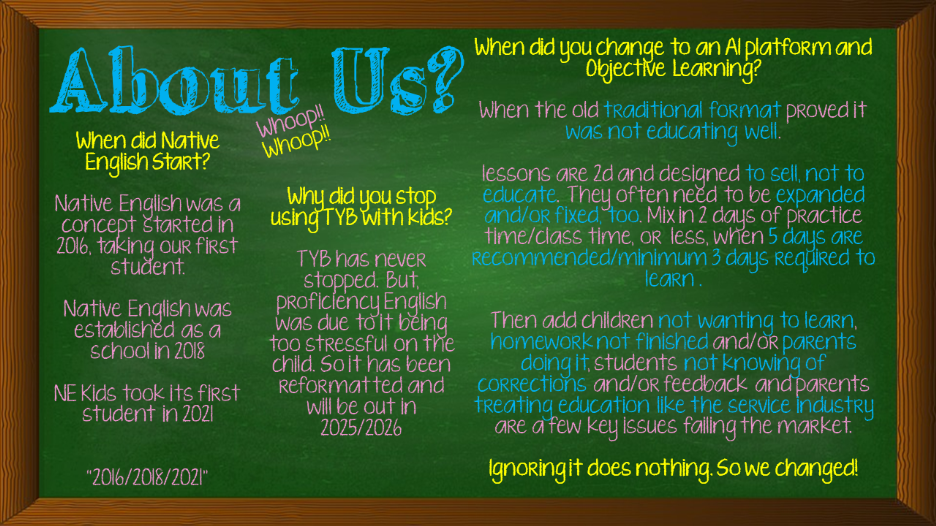 About Us?
Whoop!!
Whoop!!
When did Native
English Start?
Native English was a
concept started in
2016, taking our first
student.
Native English was
established as a
school in 2018
NE Kids took its first
student in 2021
"2016/2018/2021"
Why did you stop
using TYB with kids?
TYB has never
stopped. But,
proficiency English
was due to it being
too stressful on the
child. So it has been
reformatted and
will be out in
2025/2026
When did you change to an AI platform and
Objective Learning?
When the old traditional format proved it
was not educating well.
lessons are 2d and designed to sell, not to
educate. They often need to be expanded
and/or fixed, too. Mix in 2 days of practice
time/class time, or less, when 5 days are
recommended/minimum 3 days required to
learn .
Then add children not wanting to learn,
homework not finished and/or parents
doing it, students not knowing of
corrections and/or feedback and parents
treating education like the service industry
are a few key issues failing the market.
Ignoring it does nothing. So we changed!